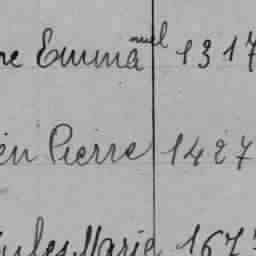 ne Emmanuel 1317
en Pierre 1427
Jules Marie 167